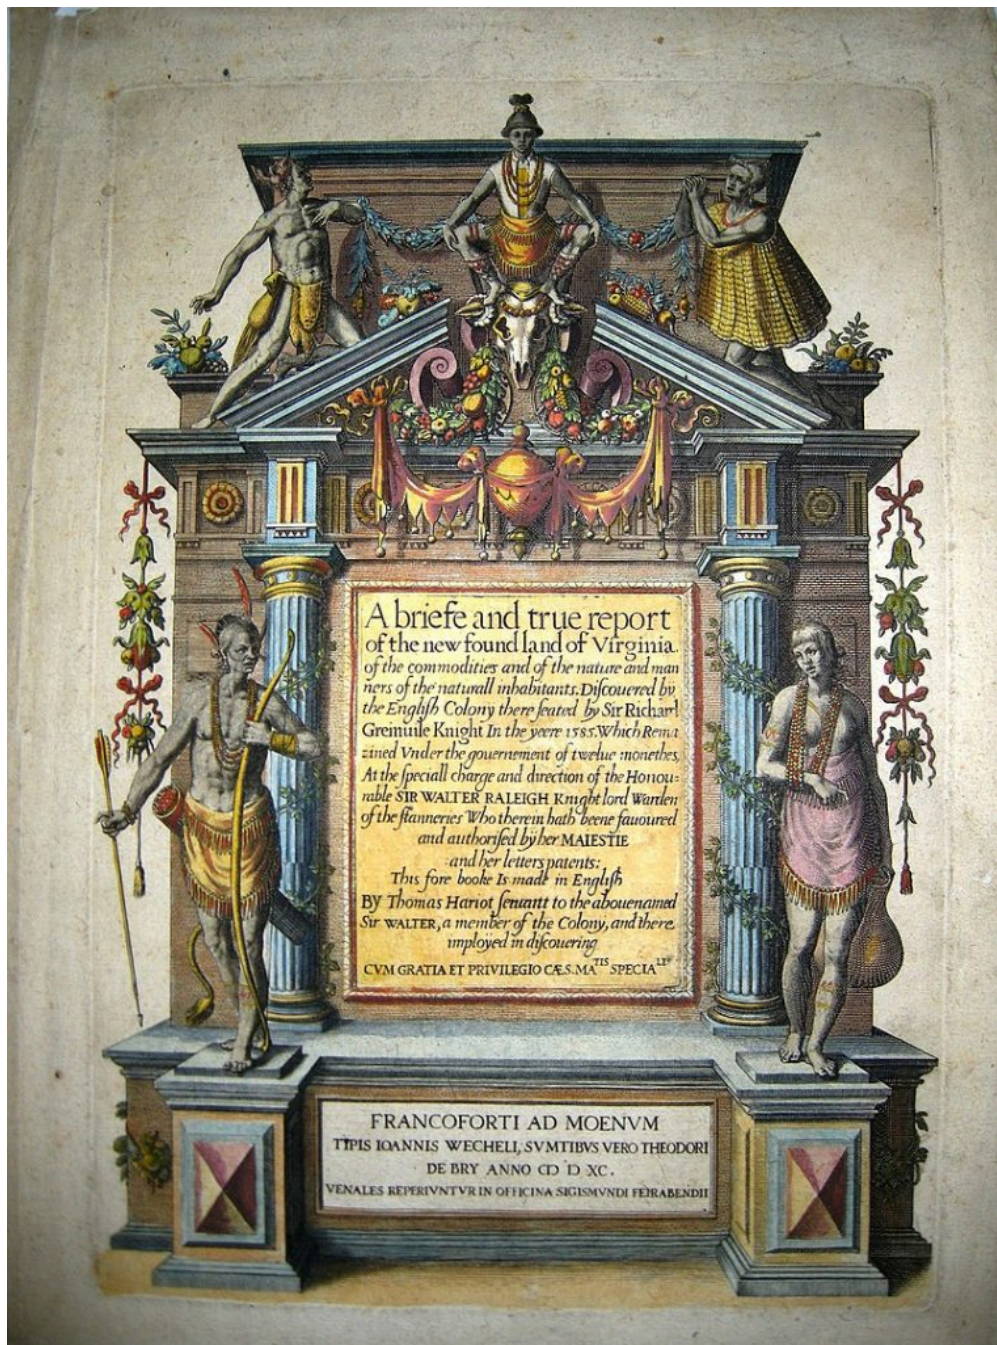 A briefe and true report
of the new found land of Virginia.
of the commodities and of the nature and man
ners of the naturall inhabitants. Diſcouered by
the Engliſh Colony there ſeated by Sir Richard
Greinuile Knight In the yeere 1585. Which Rema
ined Vnder the gouernement of twelue monethes,
At the ſpeciall charge and direction of the Honou-
rable SIR WALTER RALEIGH Knight lord Warden
of the ſtanneries Who therein hath beene fauoured
and authoriſed by her MAIESTIE
:and her letters patents:
This fore booke Is made in Engliſh
By Thomas Hariot ſeruant to the abouenamed
Sir WALTER, a member of the Colony, and there
imployed in diſcouering
CVM GRATIA ET PRIVILEGIO CÆS. MA^TIS SPECIA^LI
FRANCOFORTI AD MOENVM
TYPIS IOANNIS WECHELI, SVMTIBVS VERO THEODORI
DE BRY ANNO CIƆ IƆ XC.
VENALES REPERIVNTVR IN OFFICINA SIGISMVNDI FEIRABENDII